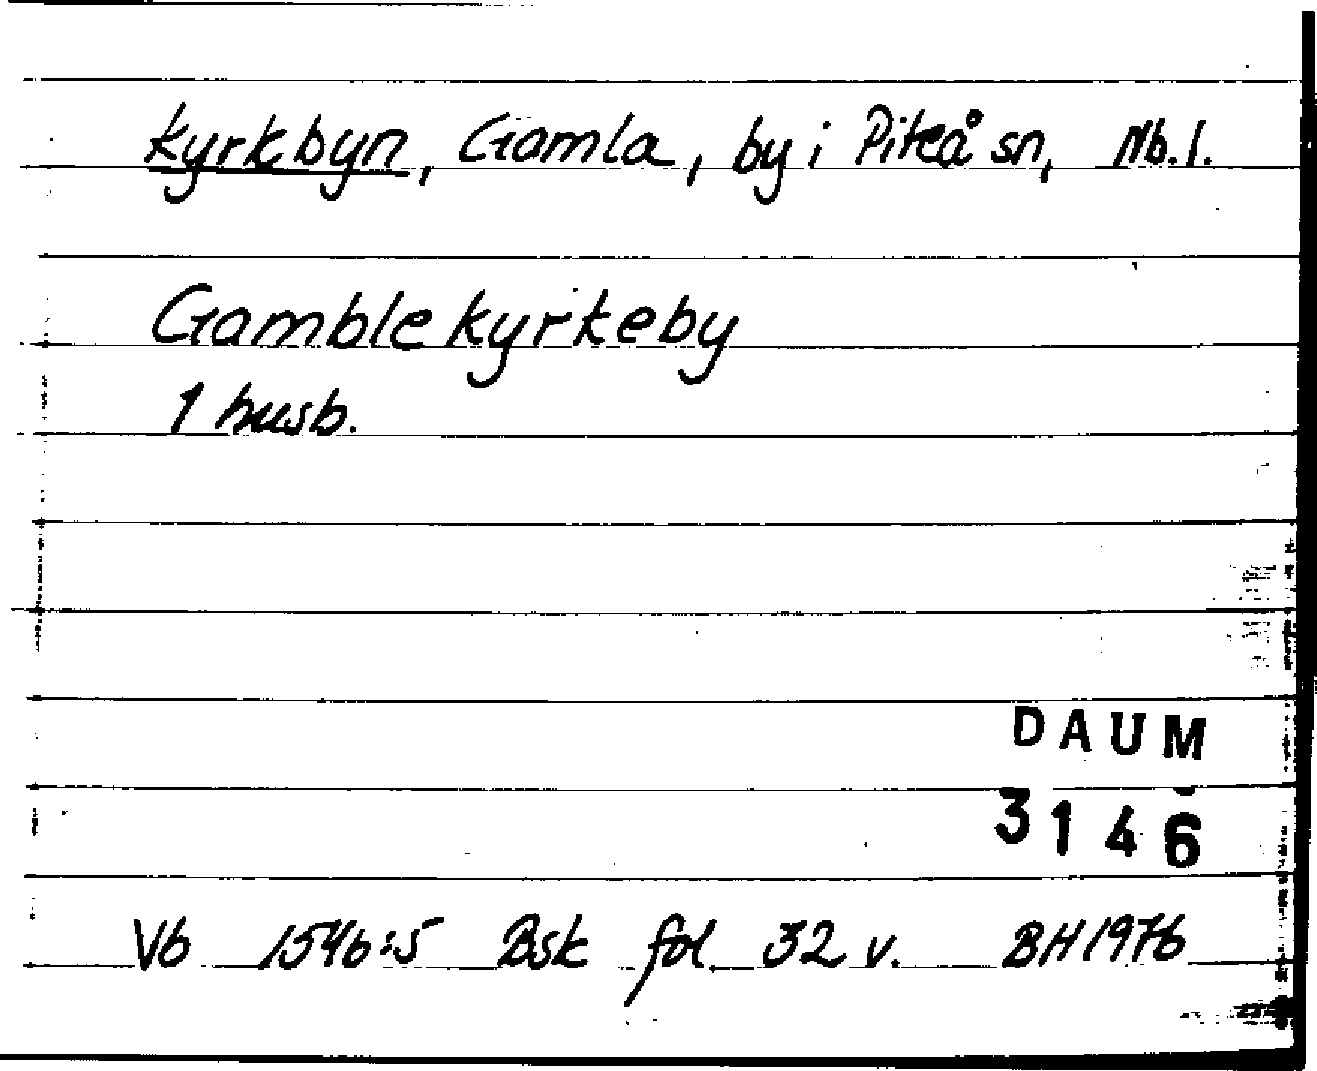 Kyrkbyn, Gamla, by i Piteå sn, Nb.l.
Gamblekyrkeby
1 husb.
DAUM
3146
Vb 1546:5 Bsk fol 32 v. BH 1976